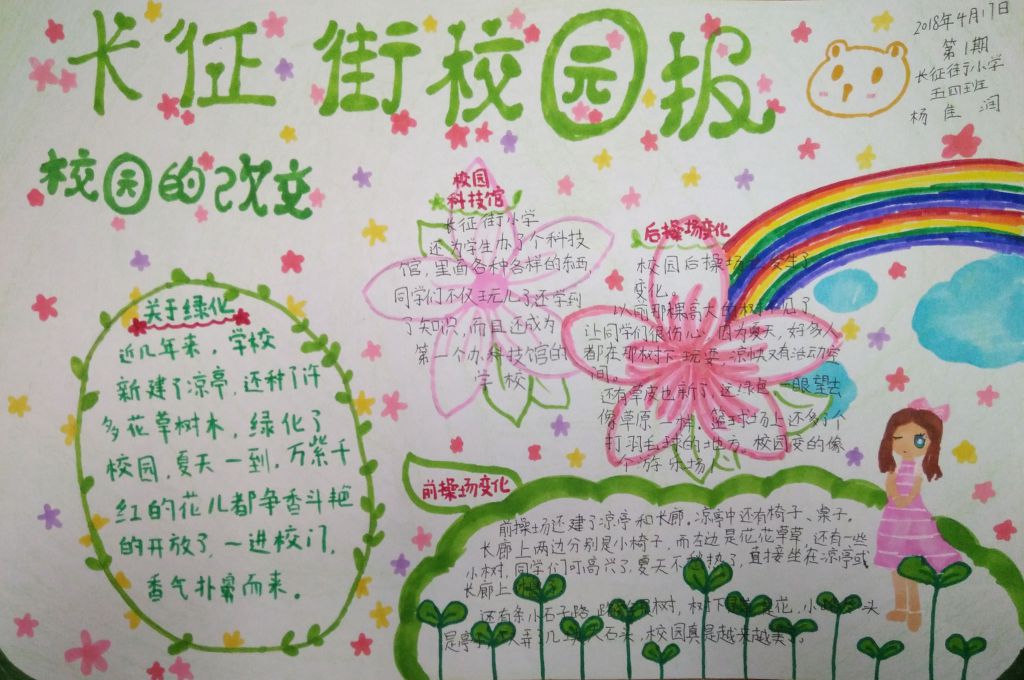 长征街校园报
2018年4月17日
第1期
长征街小学
五四班
杨佳润
校园的改变
关于绿化
近几年来，学校
新建了凉亭，还种了许
多花草树木，绿化了
校园，夏天一到，万紫千
红的花儿都争香斗艳
的开放了，一进校门，
香气扑鼻而来。
校园
科技馆
长征街小学
还为学生办了个科技
馆，里面各种各样的东西，
同学们不仅玩儿了还学到
了知识，而且还成为
第一个办科技馆的
学校
后操场变化
校园后操场 发生了
变化。
以前那棵高大的 不见了，
让同学们很伤心，因为夏天，好多人
都在那树下玩耍，凉快又有活动空
间。
还有草皮也新了，这绿色一眼望去
像草原一样，篮球场上还多了个
打羽毛球的地方，校园变的像
个游乐场
前操场变化
前操场还建了凉亭和长廊，凉亭中还有椅子、桌子。
长廊上两边分别是小椅子，而左边是花花草草，还有一些
小树，同学们可高兴了，夏天不怕热了，直接坐在凉亭或
长廊上
还有条小石子路， 树，树下 花，小 头
是亭 弄了几 大石头，校园真是越来越美